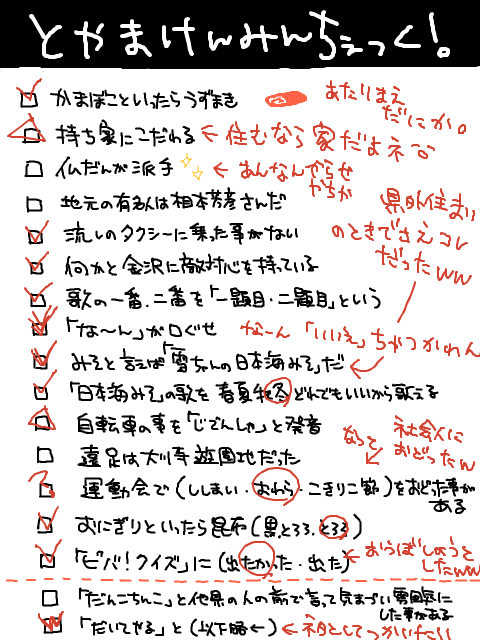 とやまけんみんちぇっく!
かまぼこといったらうずまき
あたりまえ
だにか。
持ち家にこだわる ← 住むなら家だよネ
仏だんが派手 ← あんなんやらせ
かちか
地元の有名人は相本芳彦さんだ
県外住まい
のときでさえコレ
だったww
流しのタクシーに乗った事がない
何かと金沢に敵対心を持っている
歌の一番.二番を「一題目・二題目」という
「な〜ん」が口ぐせ
なーん「いいえ」ちゃつかわん
みそと言えば「雪ちゃんの日本海みそ」だ
「日本海みそ」の歌を春夏秋冬どれでもいいから歌える
自転車の事を「じでんしゃ」と発音
遠足は大川寺遊園地だった
なつと
社会人に
おどったw
運動会で(ししまい・おわら・こきりこ節)をおどった事が
ある
おにぎりといったら昆布(黒とろろ.とろろ)
「ビバ!クイズ」に(出たかった・出た)
← おうぼしようと
したww
「だんこちんこ」と他県の人の前で言って気まづい雰囲気に
した事がある
「だいてやる」と(以下略←)
← ネタとしてつかいけたい